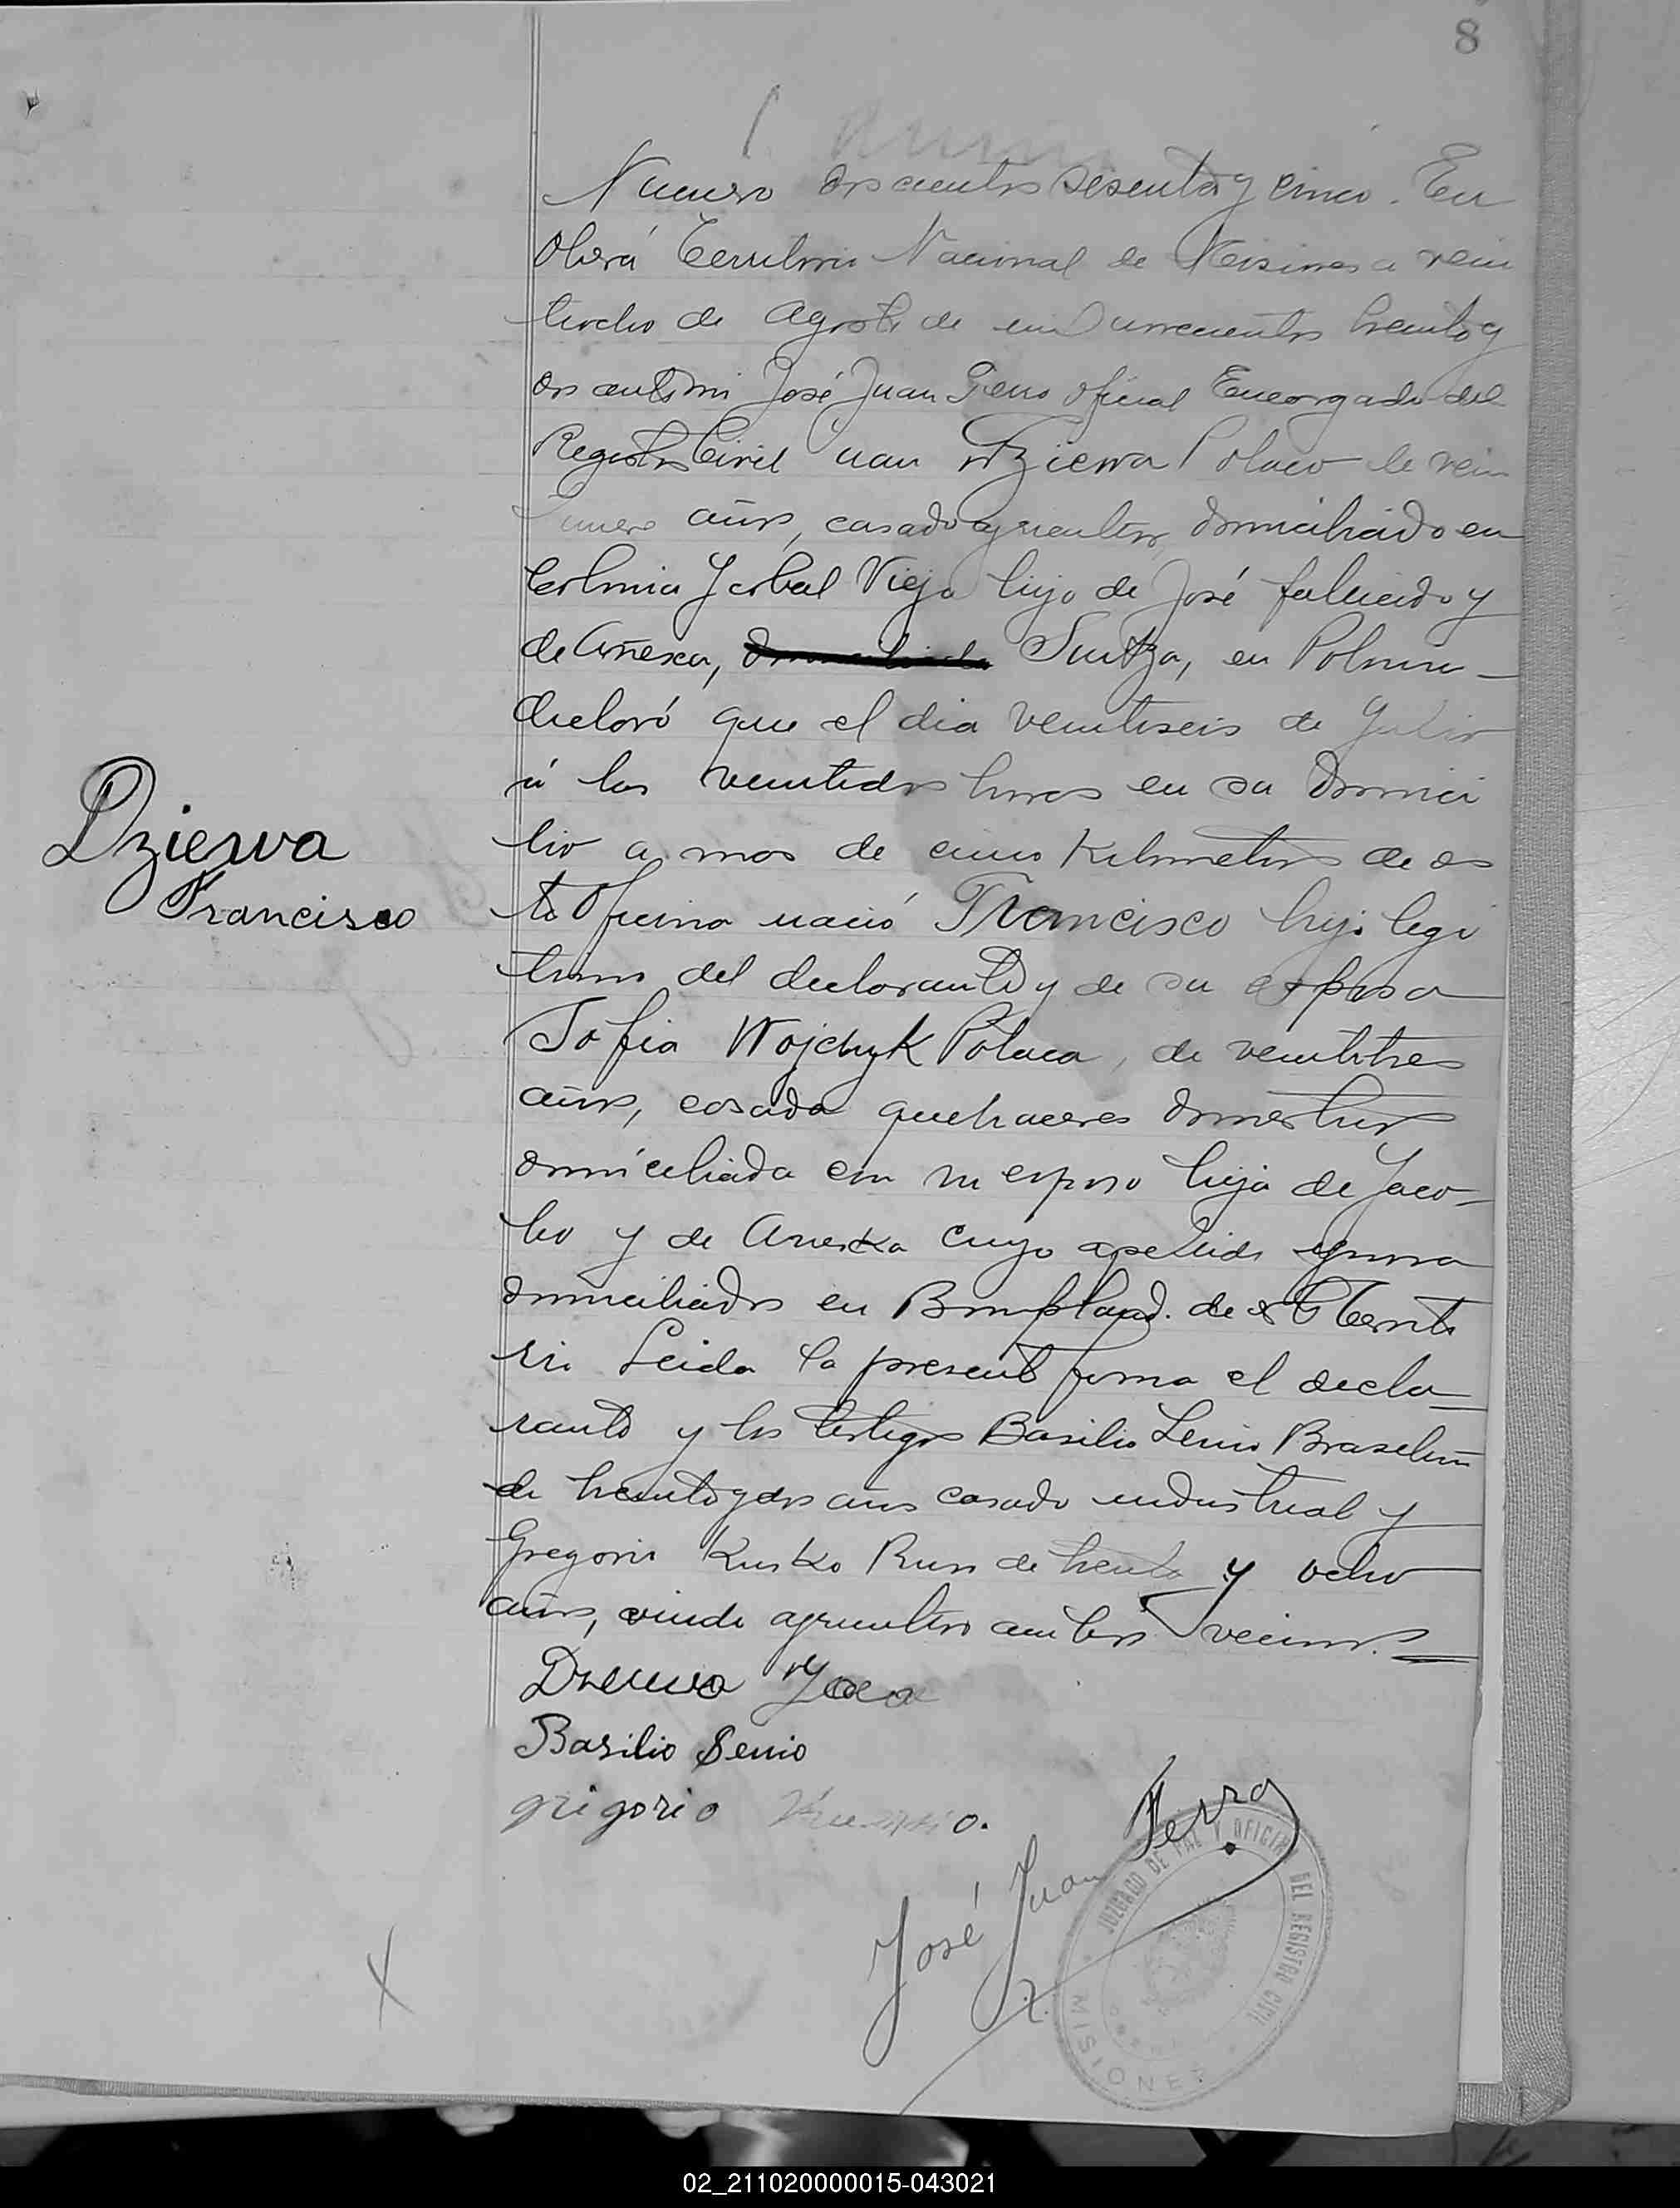 8
Numero doscientos sesenta y cinco. En
Oberá Territorio Nacional de Misiones a vein
tiocho de Agosto de mil novecientos treinta y
dos ante mi José Juan Ferro Oficial Encargado del
Registro Civil Juan Dzierva Polaco de vein
años, casado agricultor, domiciliado en
Colonia Yerbal Viejo hijo de José fallecido y
de Añesca, en Polonia
declaró que el dia veintiseis de Julio
á las veintidos horas en su domici
lio a mas de cinco Kilometros de es
ta Oficina nació Francisco hijo legi
timo del declarante y de su esposa
Sofia Wojchyk Polaca, de veintitres
años, casada quehaceres domesticos
domiciliada con su esposo hija de Jaco
bo y de Aneska cuyo apellido ignora
domiciliados en Bompland. de este Territo
rio Leida la presente firma el decla
rante y los testigos Basilio Senio Brasilero
de treinta y dos años casado industrial y
Gregorio Kusko Ruso de treinta y ocho
años, viudo agricultor ambos vecinos.
Dzierva
Francisco
Basilio Senio
grigorio
José Juan Ferro
JUZGADO DE PAZ Y OFICINA DEL REGISTRO CIVIL
MISIONES
02_211020000015-043021